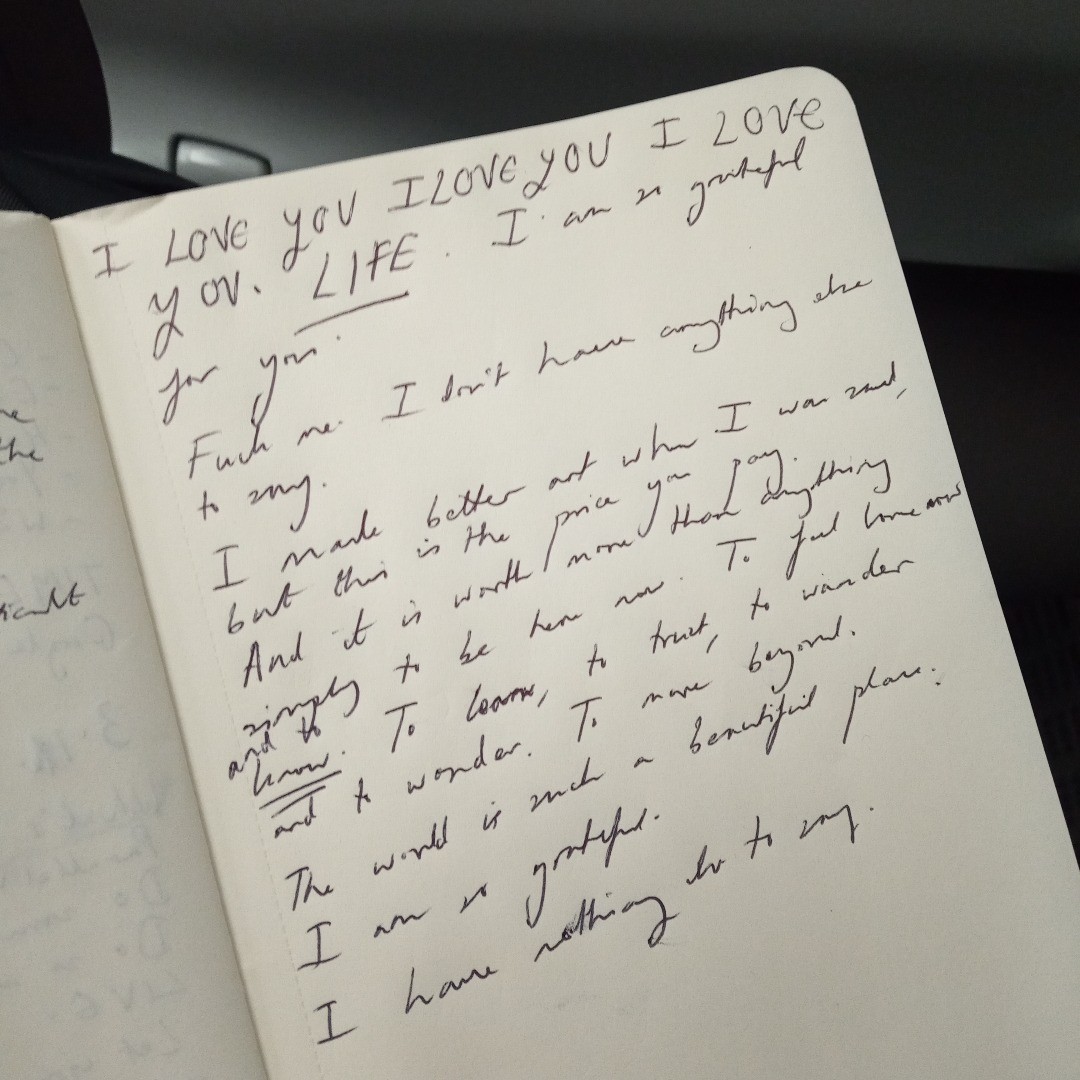 I LOVE YOU I LOVE YOU I LOVE
YOU. LIFE. I am so grateful
for you.
Fuck me. I don't have anything else
to say.
I made better art when I was sad,
but this is the price you pay.
And it is worth more than anything
simply to be here now. To feel love now
and to
know. To learn, to trust, to wander
and to wonder. To move beyond.
The world is such a beautiful place.
I am so grateful.
I have nothing else to say.
the